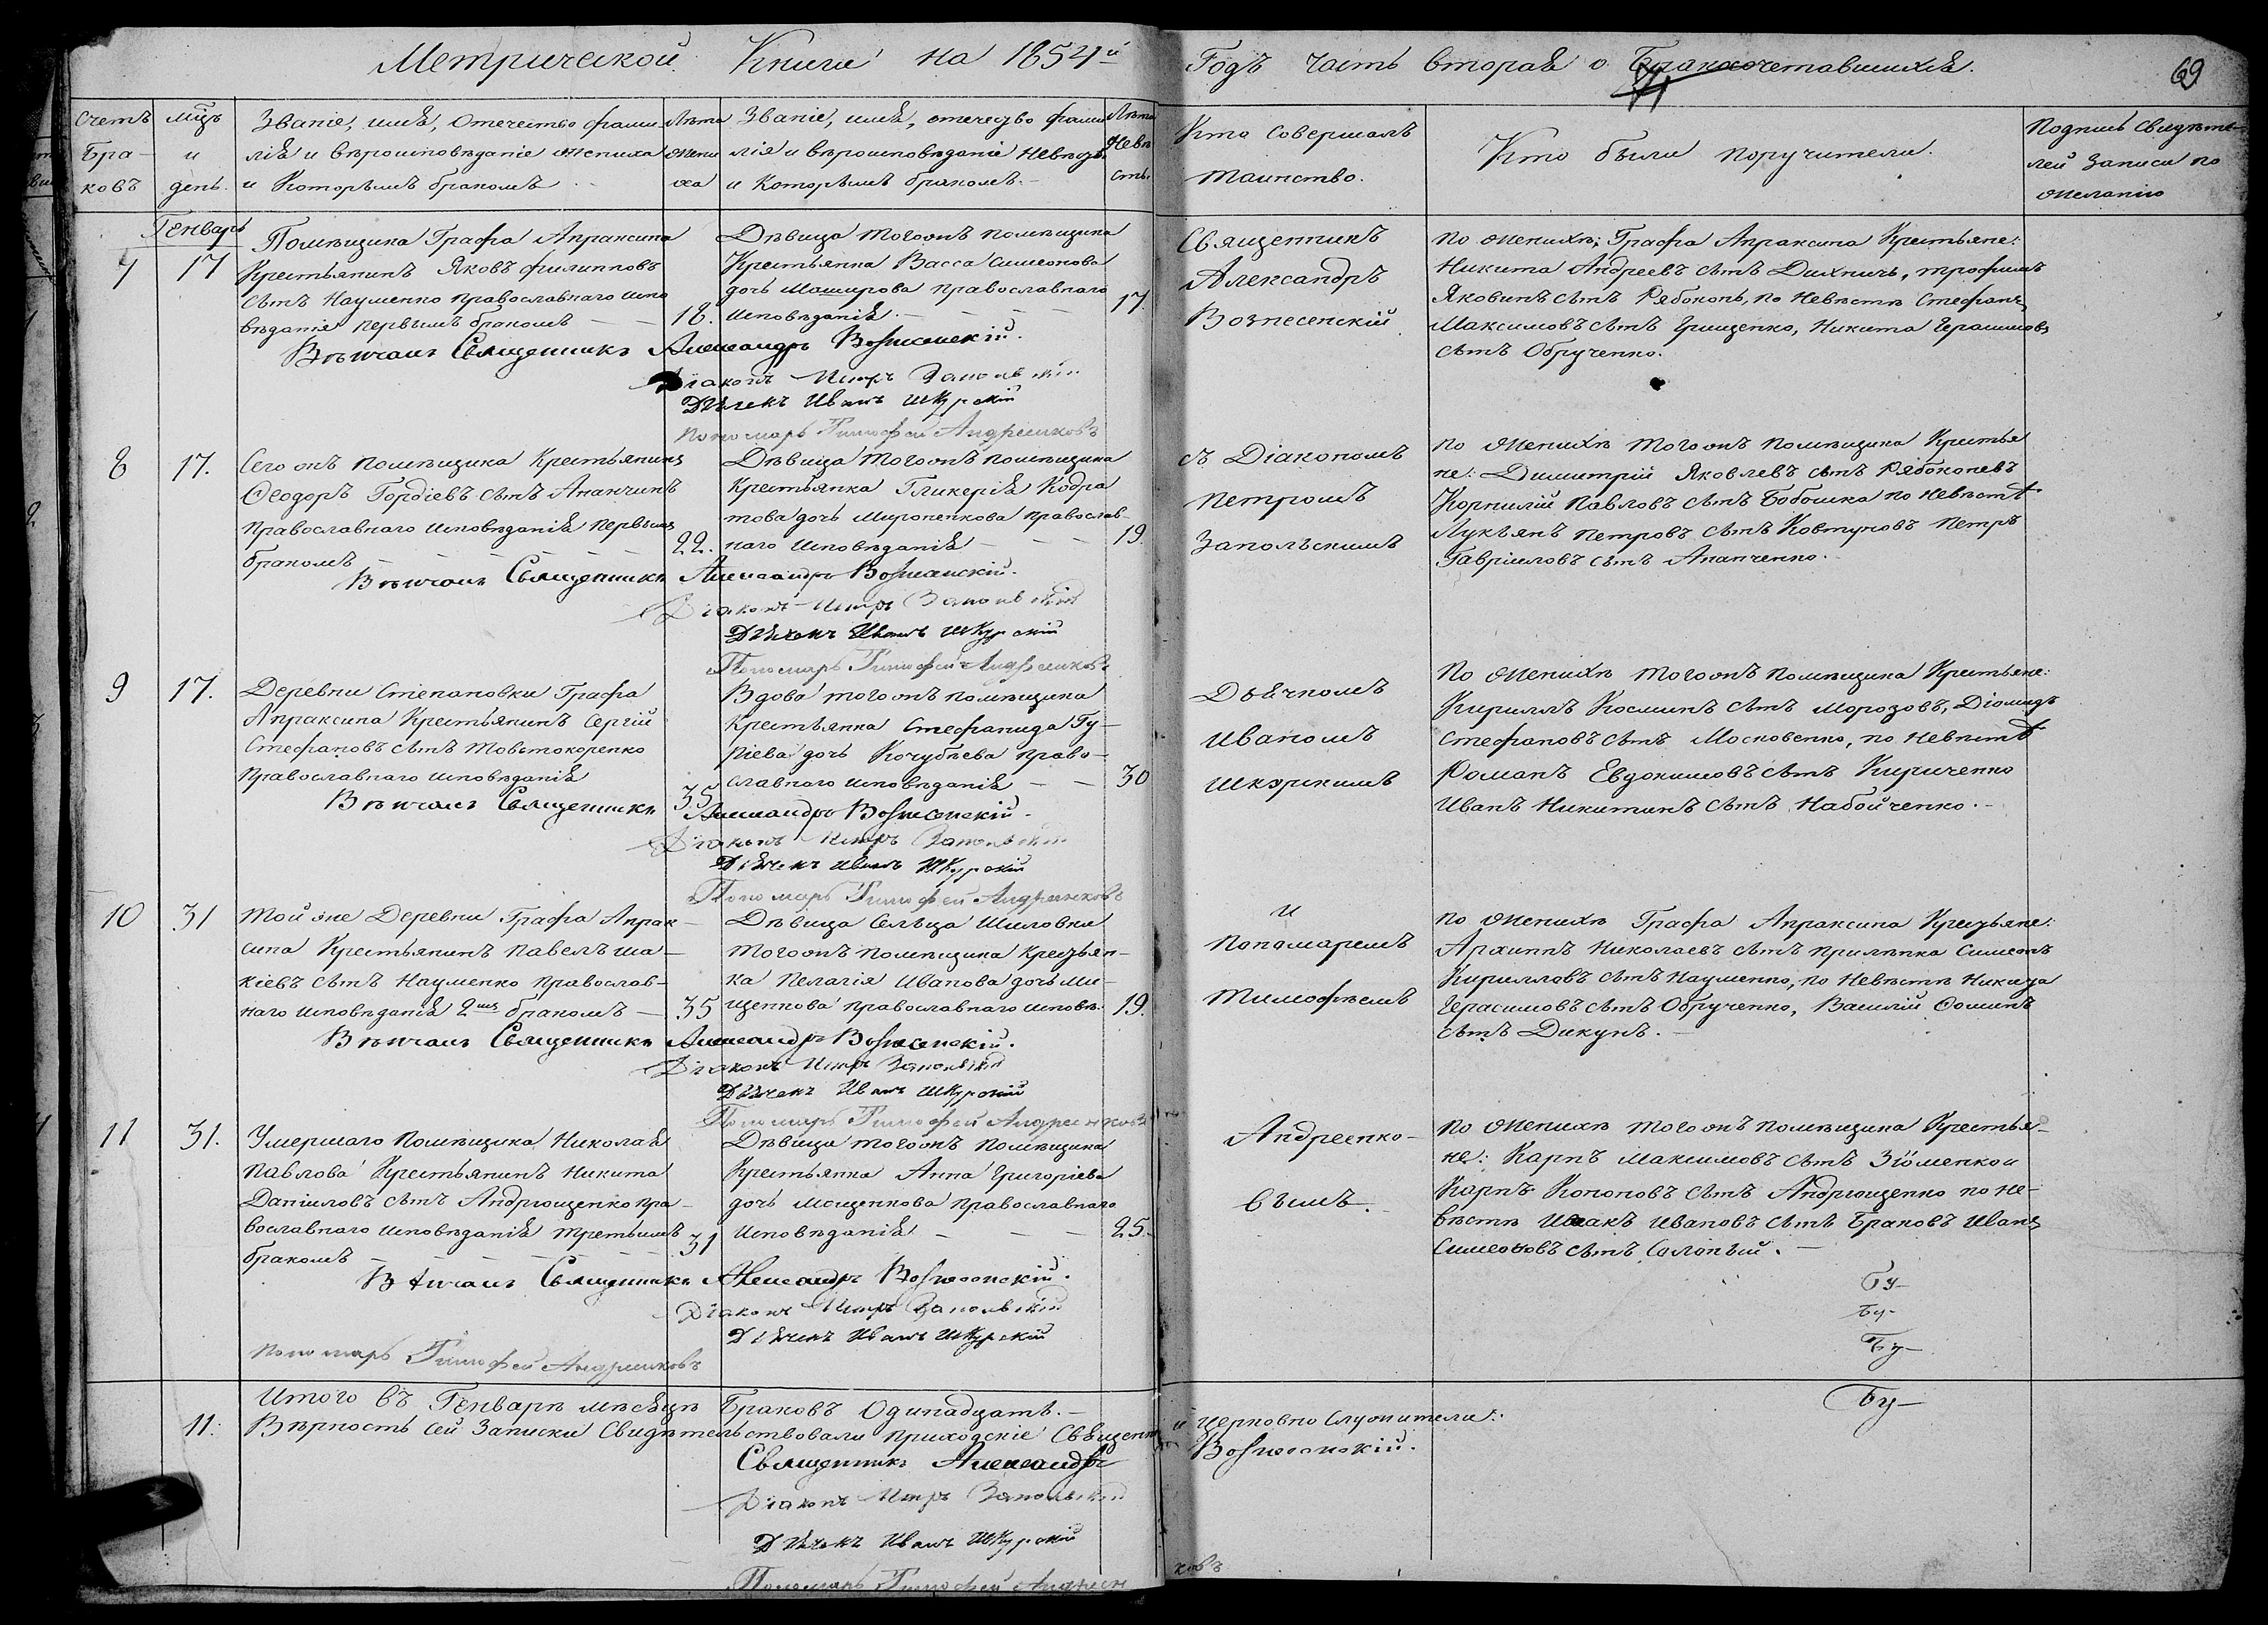 Метрической Книги на 1854й
Годъ часть вторая о бракосочетавшихся.
69
Счетъ Бра-
ковъ
мцъ
и
день.
Званіе, имя, отечество фами-
лія и вѣроисповѣданіе жениха
и Которымъ бракомъ
Лѣта
жени
ха
Званіе, имя, отечезво фами
лія и вѣроисповѣданіе Невѣсты
и Которымъ бракомъ.
Лѣта
Невѣ
сты
Кто совершалъ
таинство.
Кто были поручители.
Подпись свидѣте-
лей записи по
желанію
Генварь
7
17
Помѣщика Графа Апраксина
Крестьянинъ Яковъ филипповъ
сынъ Науменко православнаго испо
вѣданія первымъ бракомъ
18.
Дѣвица тогожъ помѣщика
Крестьянка Васса симеонова
дочь Маширова православнаго
исповѣданія.
17.
Вѣнчалъ Священникъ Александръ Вознесенскій.
Діаконъ Петръ Запольскій
Дьячекъ Иванъ Шкурскій
Пономарь Тимофей Андреенковъ
Священникъ
Александръ
Вознесенскій
По женихѣ: Графа Апраксина Крестьяне:
Никита Андреевъ сынъ Дихничь, трофимъ
Яковинъ сынъ Рябоконь, по Невѣстѣ Стефанъ
Максимовъ сынъ Грищенко, Никита Герасимовъ
сынъ Обрученко.
8
17.
Сего жъ помѣщика Крестьянинъ
Феодоръ Гордіевъ сынъ Ананчинъ
православнаго исповѣданія первымъ
бракомъ
22.
Дѣвица тогожъ помѣщика
Крестьянка Гликерія Кодра
това дочь Мироненкова православ-
наго исповѣданія
19.
Вѣнчалъ Священникъ Александръ Вознесенскій.
Діаконъ Петръ Запольскій
Дьячекъ Иванъ Шкурскій
Пономарь Тимофей Андреенковъ
съ Діакономъ
Петромъ
Запольскимъ
по женихѣ тогожъ помѣщика Крестья
не: Димитрій Яковлевъ сынъ Рябоконевъ
Корнилій Павловъ сынъ Бобошка по Невѣстѣ
Лукъянъ Петровъ сынъ Ковтуновъ Петръ
Гавріиловъ сынъ Ананченко.
9
17.
Деревни Степановки Графа
Апраксина Крестьянинъ Сергій
Стефановъ сынъ Товстокоренко
Православнаго исповѣданія
35
Вдова тогожъ помѣщика
Крестьянка Стефанида Гу-
ріева дочь Кочубѣева право-
славнаго исповѣданія
30
Вѣнчалъ Священникъ Александръ Вознесенскій.
Діаконъ Петръ Запольскій
Дьячекъ Иванъ Шкурскій
Пономарь Тимофей Андреенковъ
Дьячкомъ
Иваномъ
Шкурскимъ
По женихѣ тогожъ помѣщика Крестьяне:
Кириллъ Косминъ сынъ Морозовъ, Діомидъ
Стефановъ сынъ Московенко, по невѣстѣ
Романъ Евдокимовъ сынъ Кириченко
Иванъ Никитинъ сынъ Набойченко.
10
31
Той же Деревни Графа Апрак-
сина Крестьянинъ Павелъ
кіевъ сынъ Науменко Православ-
наго исповѣданія 2мъ бракомъ
35
Дѣвица Сельца Шиловки
тогожъ помѣщика Крезьян-
ка Пелагія Иванова дочь Ми-
щенкова православнаго исповѣ.
19.
Вѣнчалъ Священникъ Александръ Вознесенскій.
Діаконъ Петръ Запольскій
Дьячекъ Иванъ Шкурскій
Пономарь Тимофей Андреенковъ
и
Пономаремъ
Тимофѣемъ
по женихѣ Графа Апраксина Крезьяне:
Архиппъ Николаевъ сынъ Прилѣпка Симеонъ
Кирилловъ сынъ Науменко, по Невѣстѣ Никита
Герасимовъ сынъ Обрученко, Василій Фоминъ
сынъ Дикунъ.
11
31.
Умершаго помѣщика Николая
Павлова Крестьянинъ Никита
Даніиловъ сынъ Андрющенко пра-
вославнаго исповѣданія третьимъ
бракомъ
31
Дѣвица тогожъ помѣщика
Крестьянка Анна Григоріева
дочь Мощенкова православнаго
исповѣданія
25.
Вѣнчалъ Священникъ Александръ Вознесенскій.
Діаконъ Петръ Запольскій
Дьячекъ Иванъ Шкурскій
Пономарь Тимофей Андреенковъ
Андреенко-
вымъ.
по женихѣ тогожъ помѣщика Крестья-
не: Карпъ Максимовъ сынъ и
Карпъ Кононовъ сынъ Андрющенко по не-
вѣстѣ Исакъ Ивановъ сынъ Браковъ Иванъ
Симеоновъ сынъ Солопый.
Бу-
Бу-
Бу-
Бу-
11.
Итого въ Генварѣ мѣсяцѣ Браковъ Одинадцать.
Вѣрность сей Записки Свидѣтельствовали приходскіе Священно
и церковно служители:
Священникъ Александръ Вознесенскій.
Діаконъ Петръ Запольскій
Дьячекъ Иванъ Шкурскій
Пономарь Тимофей Андреен
ковъ